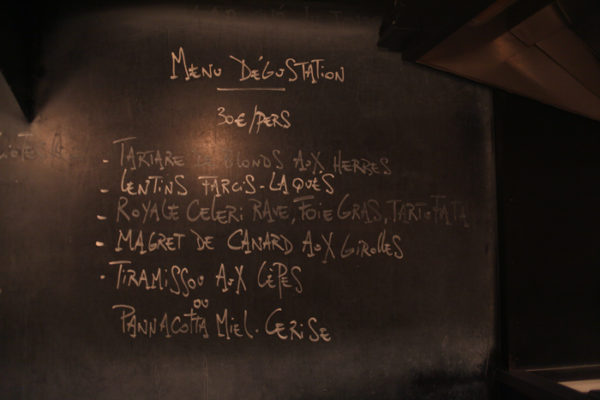 MENU DÉGUSTATION
30€/PERS
- TARTARE DE BLONDS AUX HERBES
- LENTINS FARCIS - LAQUÉS
- ROYALE CELERI RAVE, FOIE GRAS, TARTUFATA
- MAGRET DE CANARD AUX GIROLLES
- TIRAMISSOU AUX CÈPES
OU
PANNACOTTA MIEL - CERISE